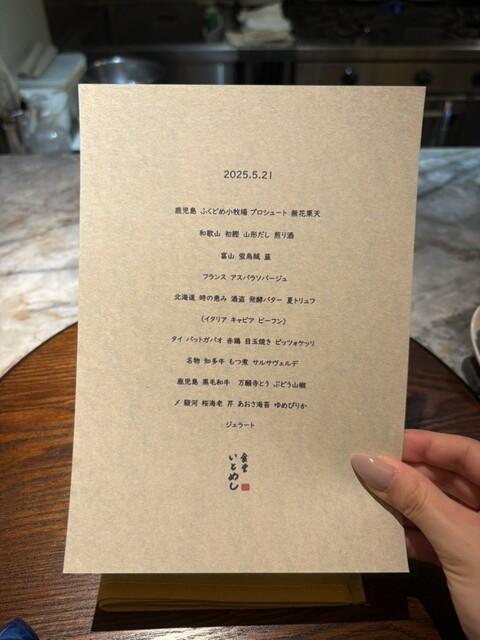 2025.5.21
鹿児島 ふくどめ小牧場 プロシュート 無花果天
和歌山 初鰹 山形だし 煎り酒
富山 蛍烏賊 韮
フランス アスパラソバージュ
北海道 時の恵み 酒盗 発酵バター 夏トリュフ
(イタリア キャビア ビーフン)
タイ パットガパオ 赤鶏 目玉焼き ピッツォケッリ
名物 知多牛 もつ煮 サルサヴェルデ
鹿児島 黒毛和牛 万願寺とう ぶどう山椒
〆 駿河 桜海老 芹 あおさ海苔 ゆめぴりか
ジェラート
食堂
いとめし